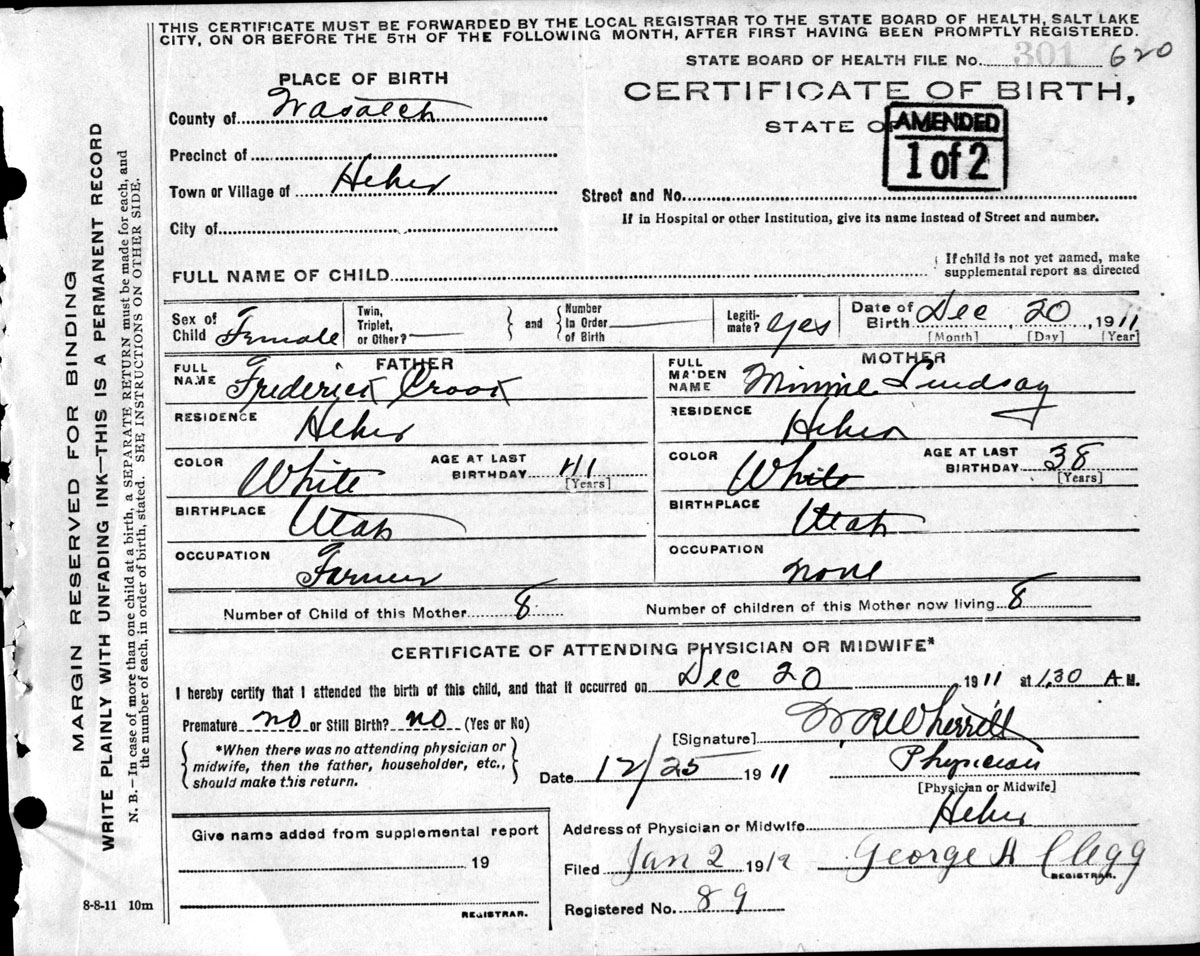 THIS CERTIFICATE MUST BE FORWARDED BY THE LOCAL REGISTRAR TO THE STATE BOARD OF HEALTH, SALT LAKE
CITY, ON OR BEFORE THE 5TH OF THE FOLLOWING MONTH, AFTER FIRST HAVING BEEN PROMPTLY REGISTERED.
STATE BOARD OF HEALTH FILE No. 301 620
PLACE OF BIRTH
CERTIFICATE OF BIRTH,
County of Wasatch
STATE OF
AMENDED
1 of 2
Precinct of
Town or Village of Heber
Street and No.
If in Hospital or other Institution, give its name instead of Street and number.
City of
FULL NAME OF CHILD
If child is not yet named, make
supplemental report as directed
Sex of Child Female
Twin, Triplet, or Other?
and
Number In Order of Birth
Legiti-mate? yes
Date of Birth Dec 20, 1911
[Month] [Day] [Year]
FATHER
MOTHER
FULL NAME Frederick Crook
FULL MAIDEN NAME Minnie Lindsay
RESIDENCE Heber
RESIDENCE Heber
COLOR White
AGE AT LAST BIRTHDAY 41 [Years]
COLOR White
AGE AT LAST BIRTHDAY 38 [Years]
BIRTHPLACE Utah
BIRTHPLACE Utah
OCCUPATION Farmer
OCCUPATION none
Number of Child of this Mother 8
Number of children of this Mother now living 8
CERTIFICATE OF ATTENDING PHYSICIAN OR MIDWIFE*
I hereby certify that I attended the birth of this child, and that it occurred on Dec 20 1911 at 1,30 A M.
Premature no or Still Birth? no (Yes or No)
[Signature] Wherritt
*When there was no attending physician or
midwife, then the father, householder, etc.,
should make this return.
Date 12/25 1911
Physician
[Physician or Midwife]
Give name added from supplemental report
Address of Physician or Midwife Heber
19
Filed Jan 2 1912 George A Clegg
REGISTRAR.
REGISTRAR.
Registered No. 89
8-8-11 10m
MARGIN RESERVED FOR BINDING
WRITE PLAINLY WITH UNFADING INK—THIS IS A PERMANENT RECORD
N. B.—In case of more than one child at a birth, a SEPARATE RETURN must be made for each, and
the number of each, in order of birth, stated. SEE INSTRUCTIONS ON OTHER SIDE.